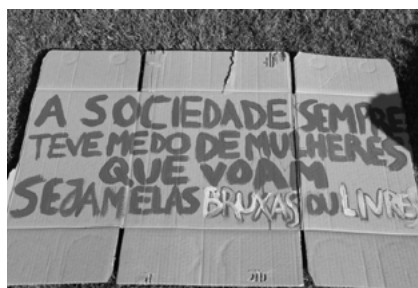 A SOCIEDADE SEMPRE
TEVE MEDO DE MULHERES
QUE VOAM
SEJAM ELAS BRUXAS OU LIVRES